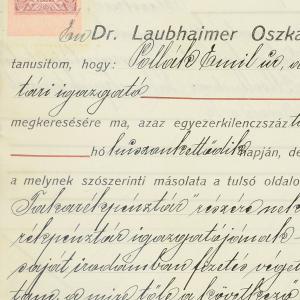 Én Dr. Laubhaimer Oszká
tanusítom, hogy: Pollák Emil úr, a
tári igazgató
megkeresésére ma, azaz egyezerkilenczszáz t
hó huszonkettödik napján, de
a melynek szószerinti másolata a tulsó oldalo
Takarékpénztár részére nek
rékpénztár igazgatójának
saját irodámban fizetés véget
tam, a mire tőle a következő